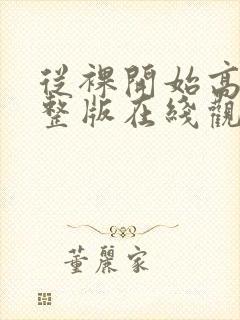 從裸開始高
整版在綫觀
董麗家